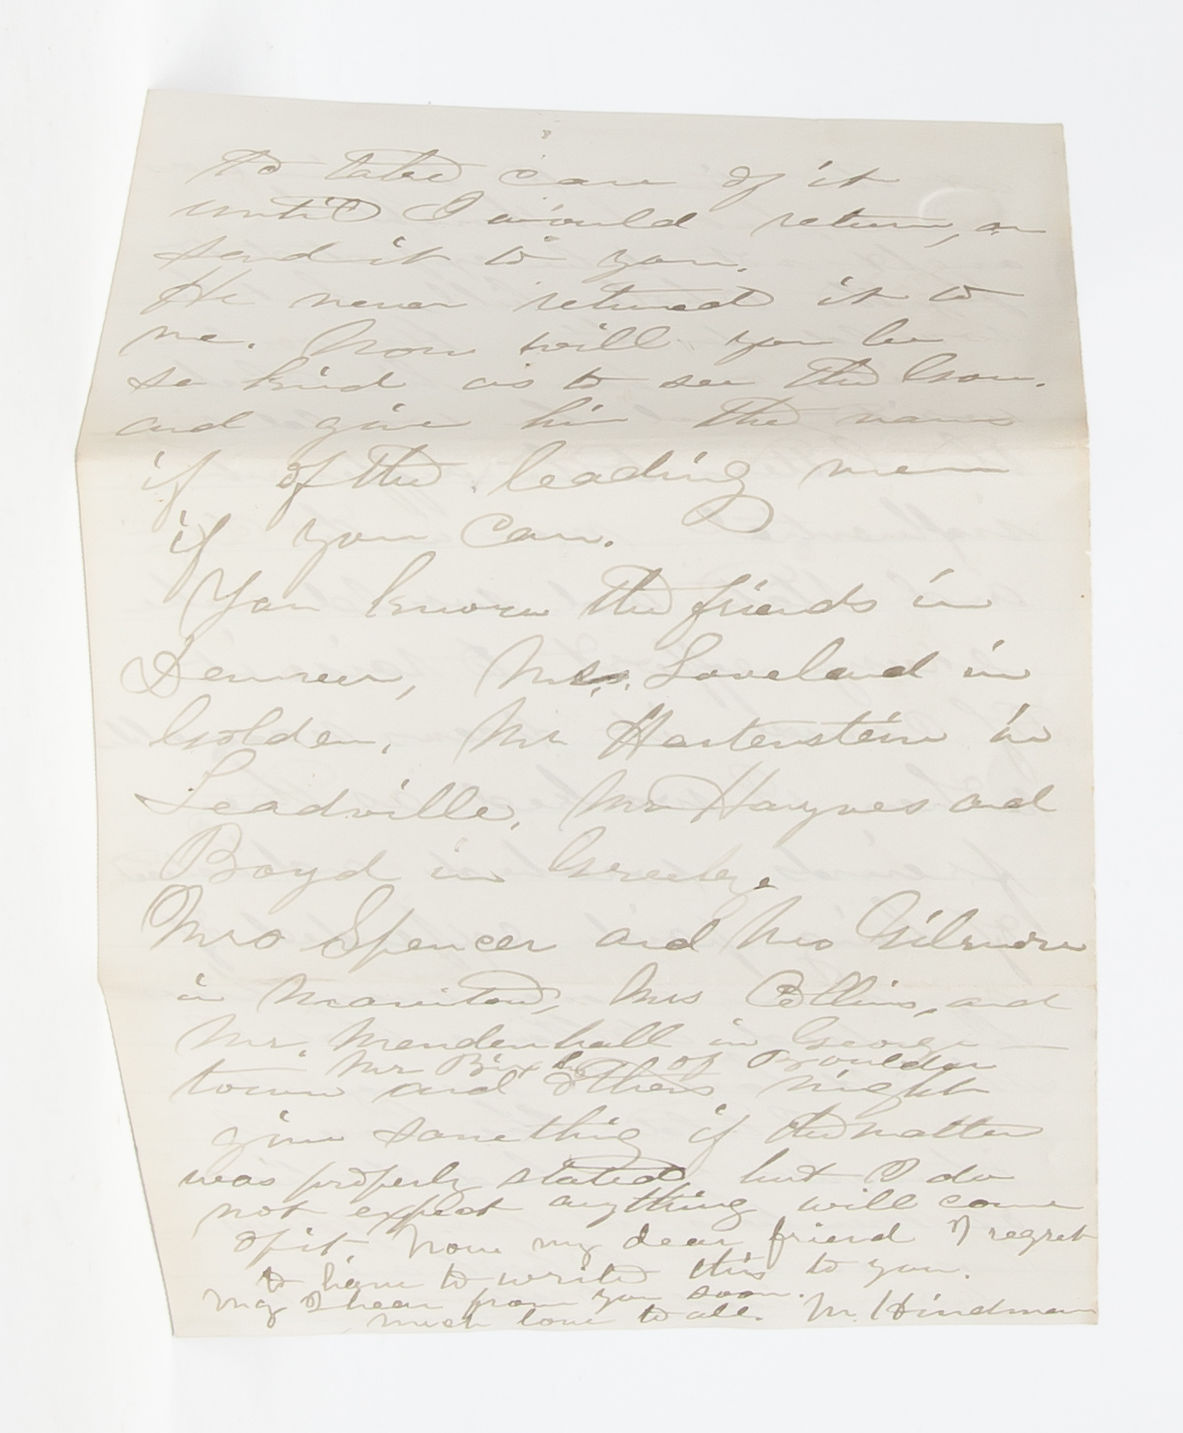 To take care of it
until I would return, or
send it to you.
He never returned it to
me. Now will you be
so kind as to see the Gov.
and give him the names
if of the leading men
if you can.
You know the friends in
Denver, Mrs. Loveland in
Golden, Mr Hartenstein in
Leadville, Mr Haynes and
Boyd in Greeley.
Mrs Spencer and Mrs Gilmore
in Manitou, Mrs Collins, and
Mr. Mendenhall in George
Mr Bixby of Boulder
town and others might
give something if the matter
was properly stated, but I do
not expect anything will come
of it. Now my dear friend I regret
to have to write this to you.
May I hear from you soon.
much love to all. M. Hindman